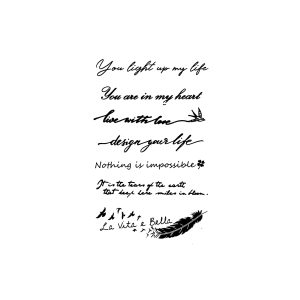 You light up my life
You are in my heart
live with love
design your life
Nothing is impossible
It is the tears of the earth
that keep here smiles in bloom.
La Vita e Bella